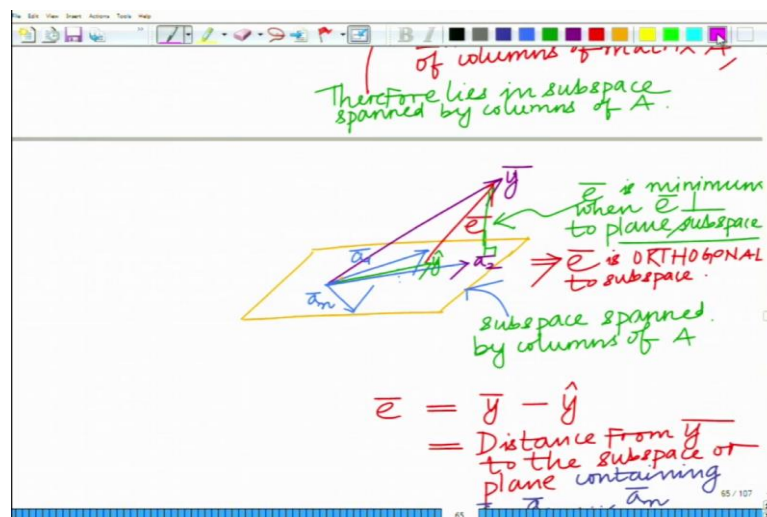 File Edit View Insert Actions Tools Help
of columns of matrix A,
Therefore lies in subspace
spanned by columns of A.
y̅
e̅
a̅₁
ŷ
a̅₂
a̅ₘ
e̅ is minimum
when e̅ ⊥
to plane/subspace
⇒ e̅ is ORTHOGONAL
to subspace.
subspace spanned.
by columns of A
e̅ = y̅ - ŷ
= Distance from y̅
to the subspace or
plane containing
a̅ₘ
65 / 107
65